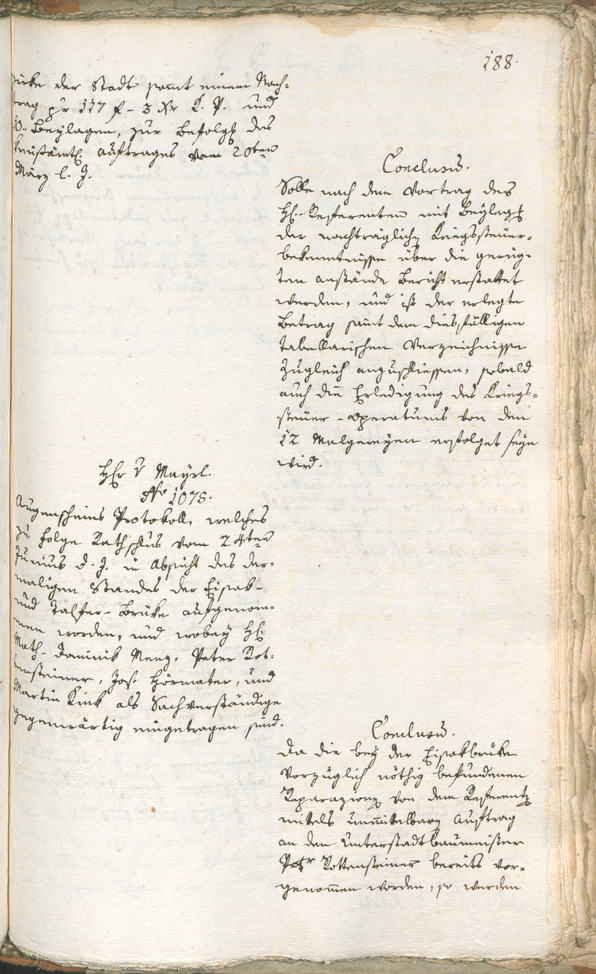 188.
der Stadt sammt einem Nach-
trag pr 117 f - 3 Xr C. P. und
10. Beylagen, zur Befolgg des
Auftrages vom 20ten
März l. J.
Conclusū.
Solle nach dem Vortrag des
H. Referenten mit Beylagg
der nachträglichen Kriegssteuer-
bekenntnisse über die gerüg-
ten Anstände Bericht erstattet
werden, und ist der erlegte
Betrag samt dem diesfälligen
tabellarischen Verzeichnisse
zugleich anzuschliessen, sobald
auch die Erledigung des Kriegs-
steuer-Operatums von den
12 Malgreyen erfolget seyn
wird.
Hr v Mayrl.
No 1075.
Augenscheins Protokoll, welches
zu folge Rathschlus vom 24ten
Junius d. J. in Absicht des der-
maligen Standes der Eisak-
und Talfer-Brüke aufgenom-
men worden, und wobey H.
Math. Dominik Meng, Peter Rot-
tensteiner, Jos. Hörmater, und
Martin Kink als Sachverständige
gegenwärtig eingetragen sind.
Conclusū.
Da die bey der Eisakbrüke
vorzüglich nöthig befundenen
Reparazionen von dem Referenten
mittels unmittelbarn Auftrag
an den Unterstadtbaumeister
Peter Rottensteiner bereits vor-
genommen worden, so werden